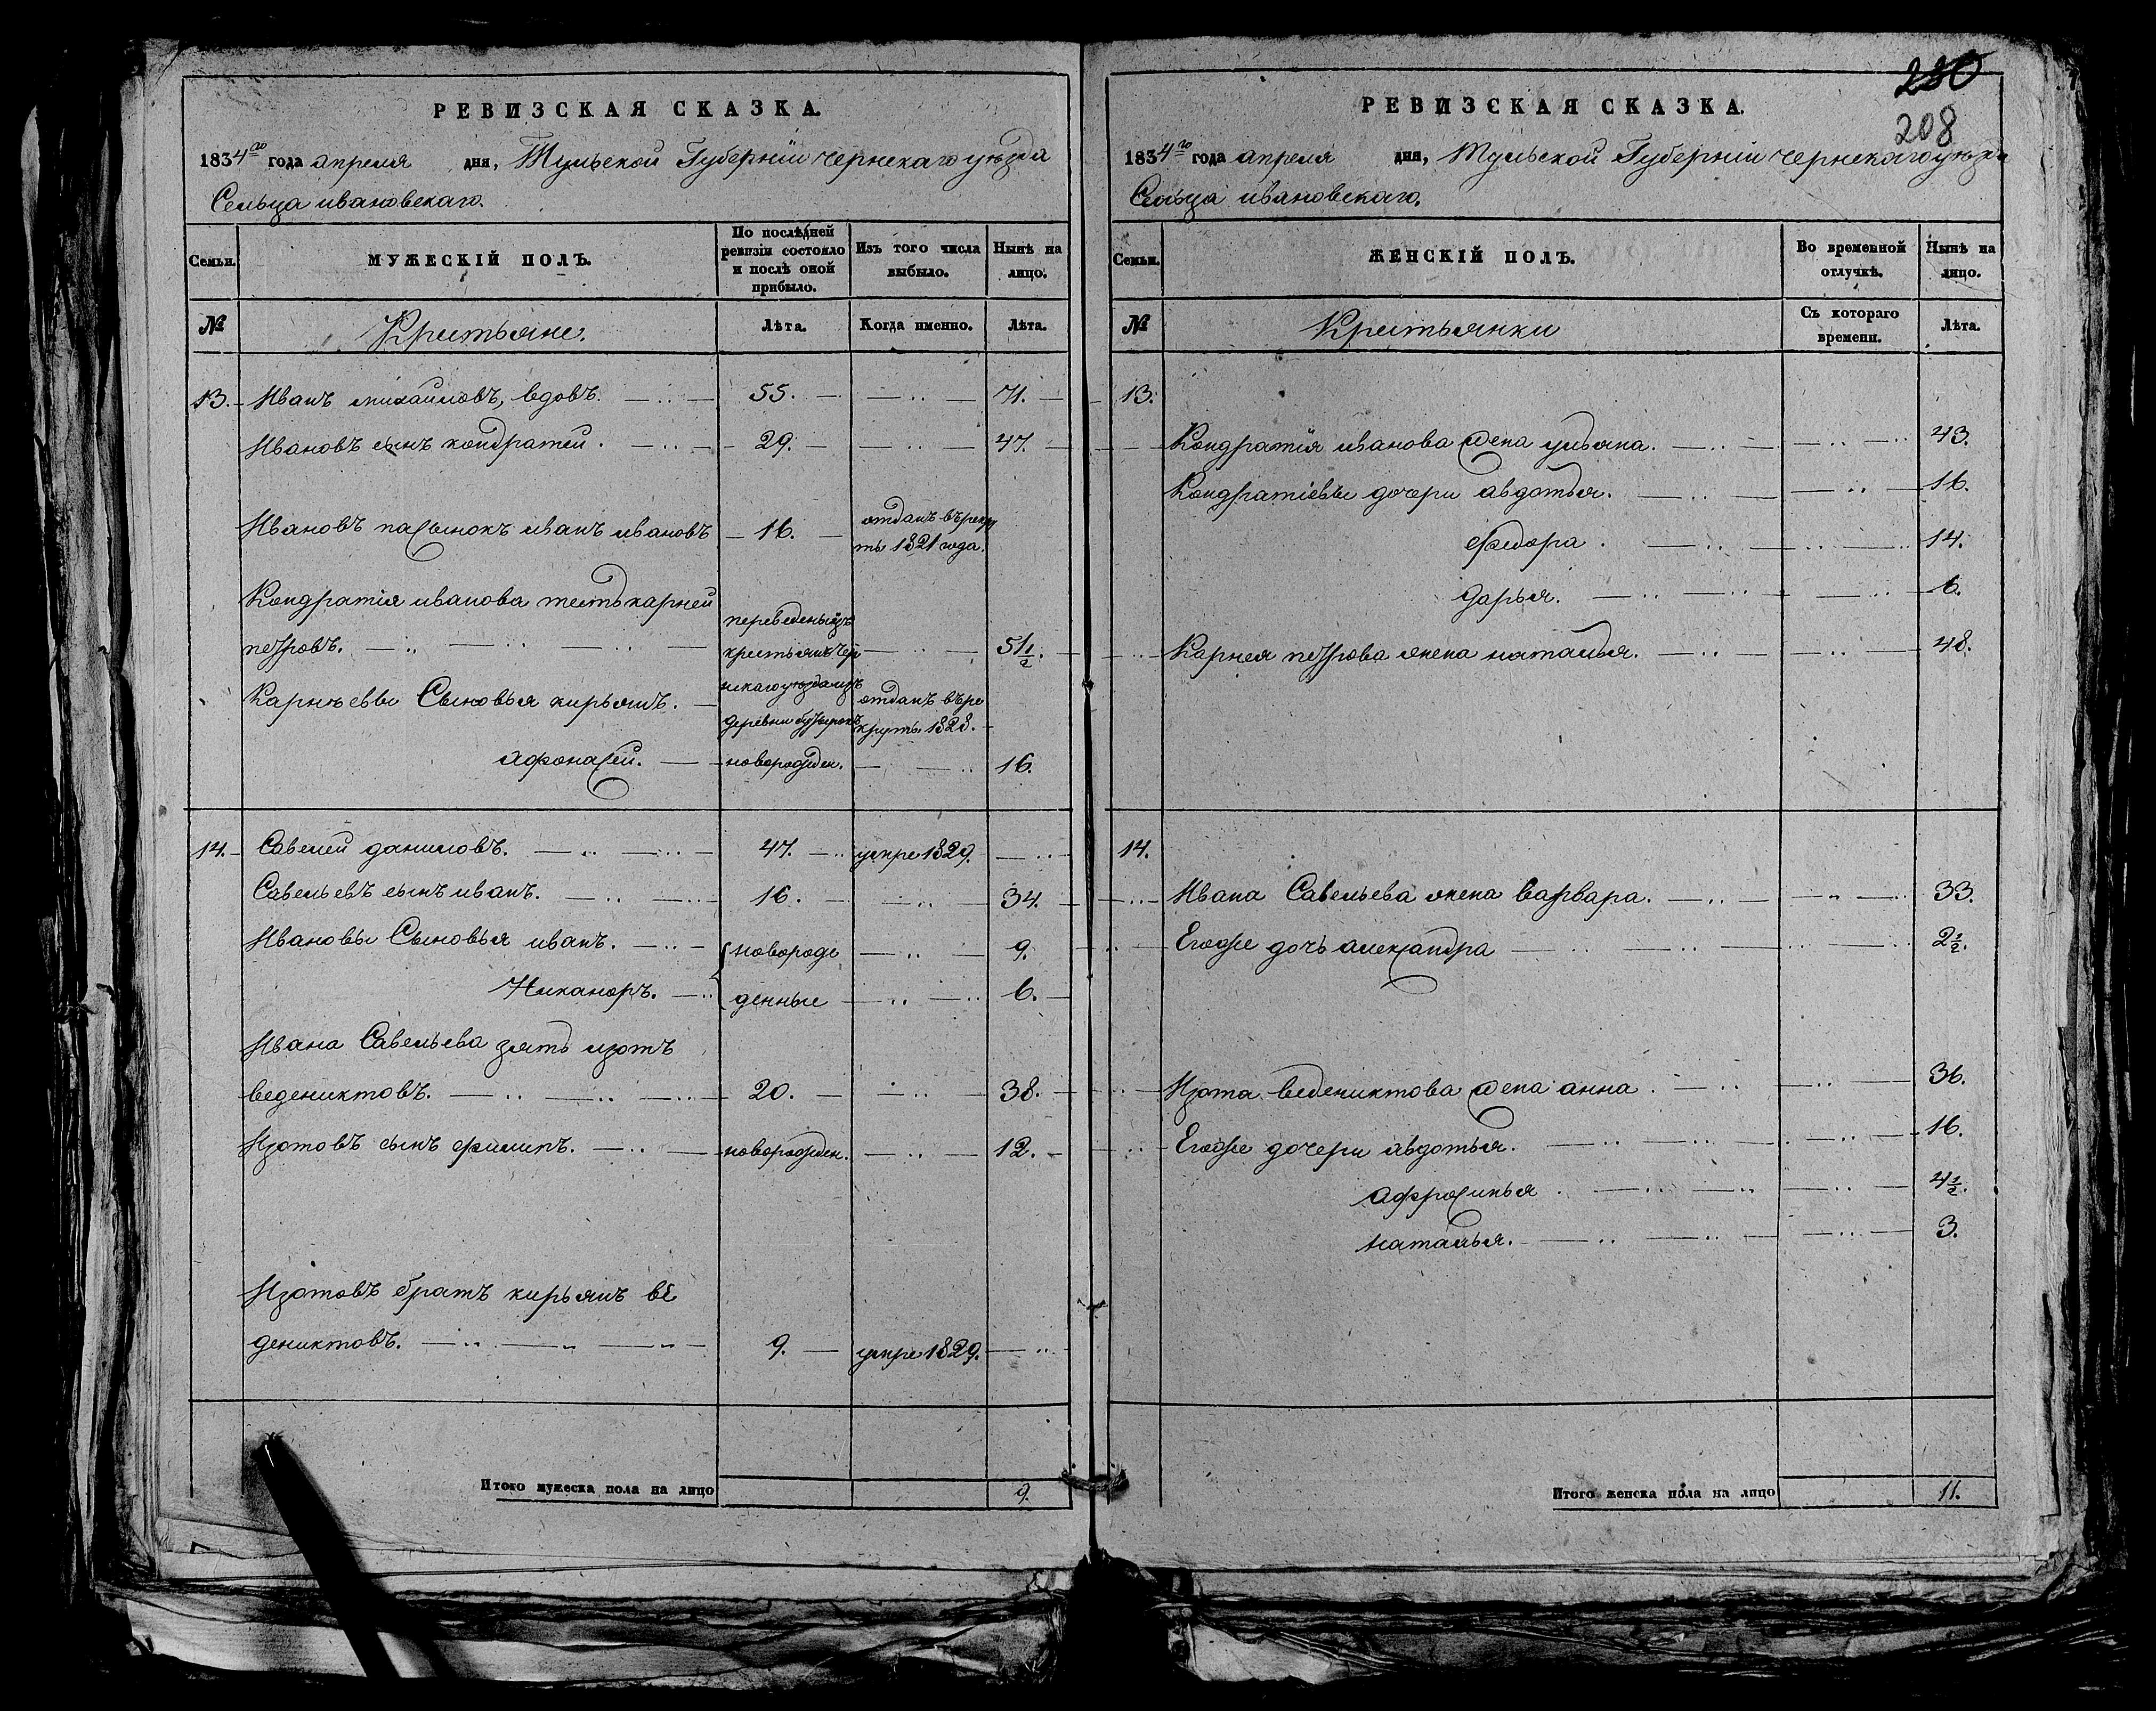 РЕВИЗСКАЯ СКАЗКА.
1834го года апреля дня, Тульской Губернiи чернскаго уѣзда
Сельца ивановскаго.
Семьи.
МУЖЕСКIЙ ПОЛЪ.
По послѣдней ревизiи состояло и послѣ оной прибыло.
Изъ того числа выбыло.
Нынѣ на лицо.
№ Крестьяне. Лѣта. Когда именно. Лѣта.
13. Иванъ михаиловъ, вдовъ. 55. 71.
Ивановъ сынъ кондратей. 29. 47.
Ивановъ пасынокъ иванъ ивановъ 16. отданъ въ рекру
ты 1821 года.
Кондратiя иванова тесть карней
петровъ. 51 1/2.
переведеныизъ
крестьянъ чер
нскаго уѣзда изъ
деревни бутырокъ
Карнѣевы Сыновья кирьянъ. отданъ въ ре
круты 1828.
афонасей. новорожден. 16.
14. Савелей даниловъ. 47. умре 1829.
Савельевъ сынъ иванъ. 16. 34.
Ивановы Сыновья иванъ. новорож 9.
Никаноръ. денные 6.
Ивана Савельева зять изотъ
ведениктовъ. 20. 38.
Изотовъ сынъ филипъ. новорожден. 12.
Изотовъ братъ кирьянъ ве
дениктовъ. 9. умре 1829.
Итого мужеска пола на лицо 9.
280
208
РЕВИЗСКАЯ СКАЗКА.
1834го года апреля дня, Тульской Губернiи чернскаго уѣзда
Сельца ивановскаго.
Семьи.
ЖЕНСКIЙ ПОЛЪ.
Во временной отлучкѣ.
Нынѣ на лицо.
№ Крестьянки Съ котораго времени. Лѣта.
13.
Кондратiя иванова жена ульяна. 43.
Кондратiевы дочери авдотья. 16.
федора. 14.
дарья. 6.
Карнея петрова жена наталья. 48.
14.
Ивана Савельева жена варвара. 33.
Егоже дочь александра 2 1/2.
Изота ведениктова жена анна. 36.
Егоже дочери авдотья. 16.
афросинья. 4 1/2.
наталья. 3.
Итого женска пола на лицо 11.